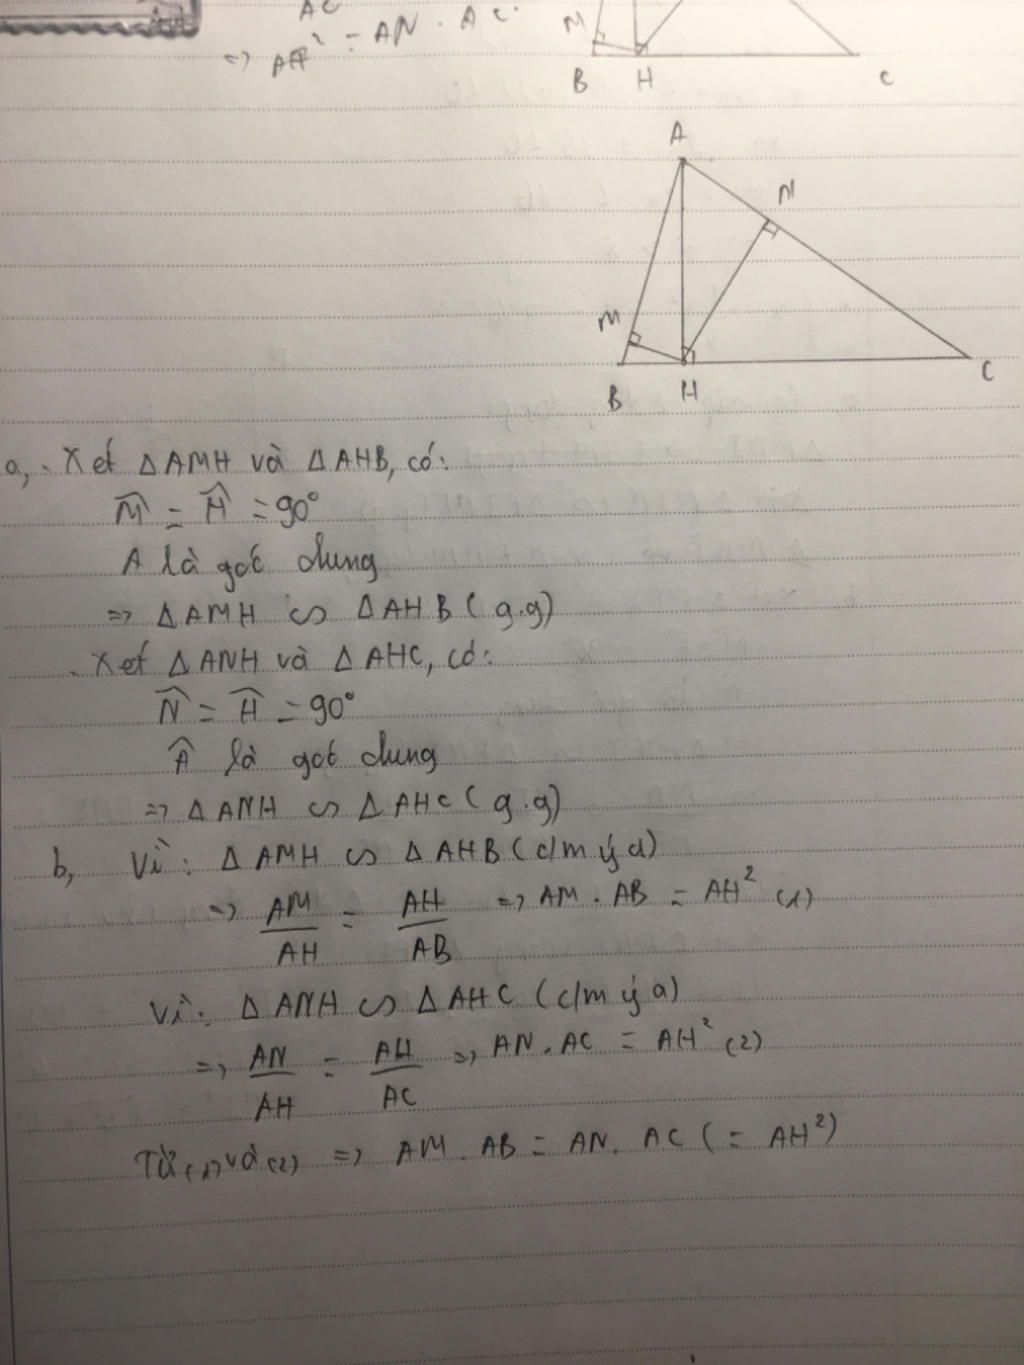 AC
=> AH² = AN . AC
M
B H C
A
N
M
B H C
a, . Xét Δ AMH và Δ AHB, có:
M̂ = Ĥ = 90°
A là góc chung
=> Δ AMH ∽ Δ AHB ( g.g)
. Xét Δ ANH và Δ AHC, có:
N̂ = Ĥ = 90°
Â là góc chung
=> Δ ANH ∽ Δ AHC ( g.g)
b, Vì: Δ AMH ∽ Δ AHB ( c/m ý a)
=> AM/AH = AH/AB => AM . AB = AH² (1)
Vì: Δ ANH ∽ Δ AHC ( c/m ý a)
=> AN/AH = AH/AC => AN . AC = AH² (2)
Từ (1) và (2) => AM . AB = AN . AC ( = AH²)